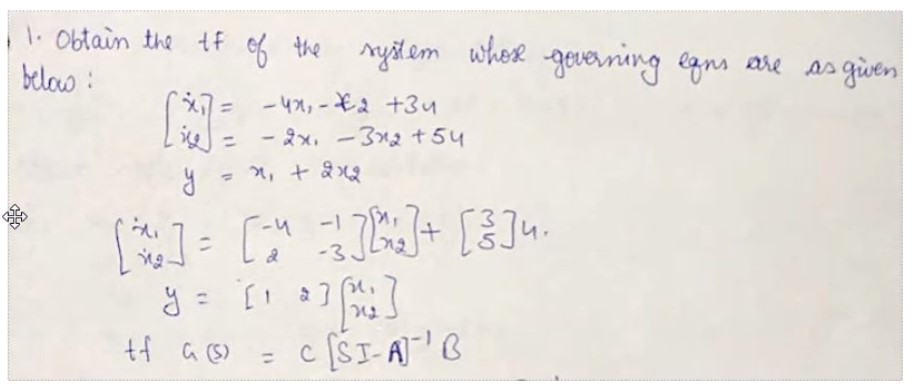 1. Obtain the tf of the system whose governing eqns are as given
below :
[ẋ₁] = -4x₁ - x₂ + 3u
[ẋ₂] = - 2x₁ - 3x₂ + 5u
y = x₁ + 2x₂
[ẋ₁ ẋ₂] = [-4 -1 2 -3] [x₁ x₂] + [3 5] u.
y = [1 2] [x₁ x₂]
tf G(s) = C [SI-A]⁻¹ B